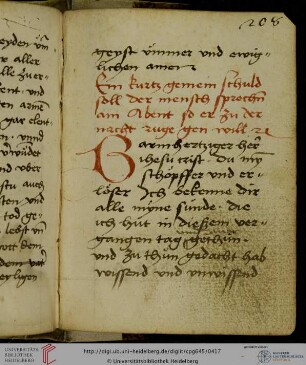 208
geyst ymmer vnd ewig-
lichen amen
Ein kurtz gemein schuld
soll der mensch sprechn
am Abent so er zu der
nacht ruge gen will
Barmhertziger her
ihesu crist du myn
schöpffer vnd er-
löser Ich bekenne dir
alle myne sünde die
ich hüt in dießem ver-
gangen tag gethün
vnd zu thün gedacht hab
wissend vnd vnwissend
eyden
aller
vnd
gar
vnd
vnd vber
stu auch
vnd
http://digi.ub.uni-heidelberg.de/diglit/cpg645/0417
© Universitätsbibliothek Heidelberg
UNIVERSITÄTS-
BIBLIOTHEK
HEIDELBERG